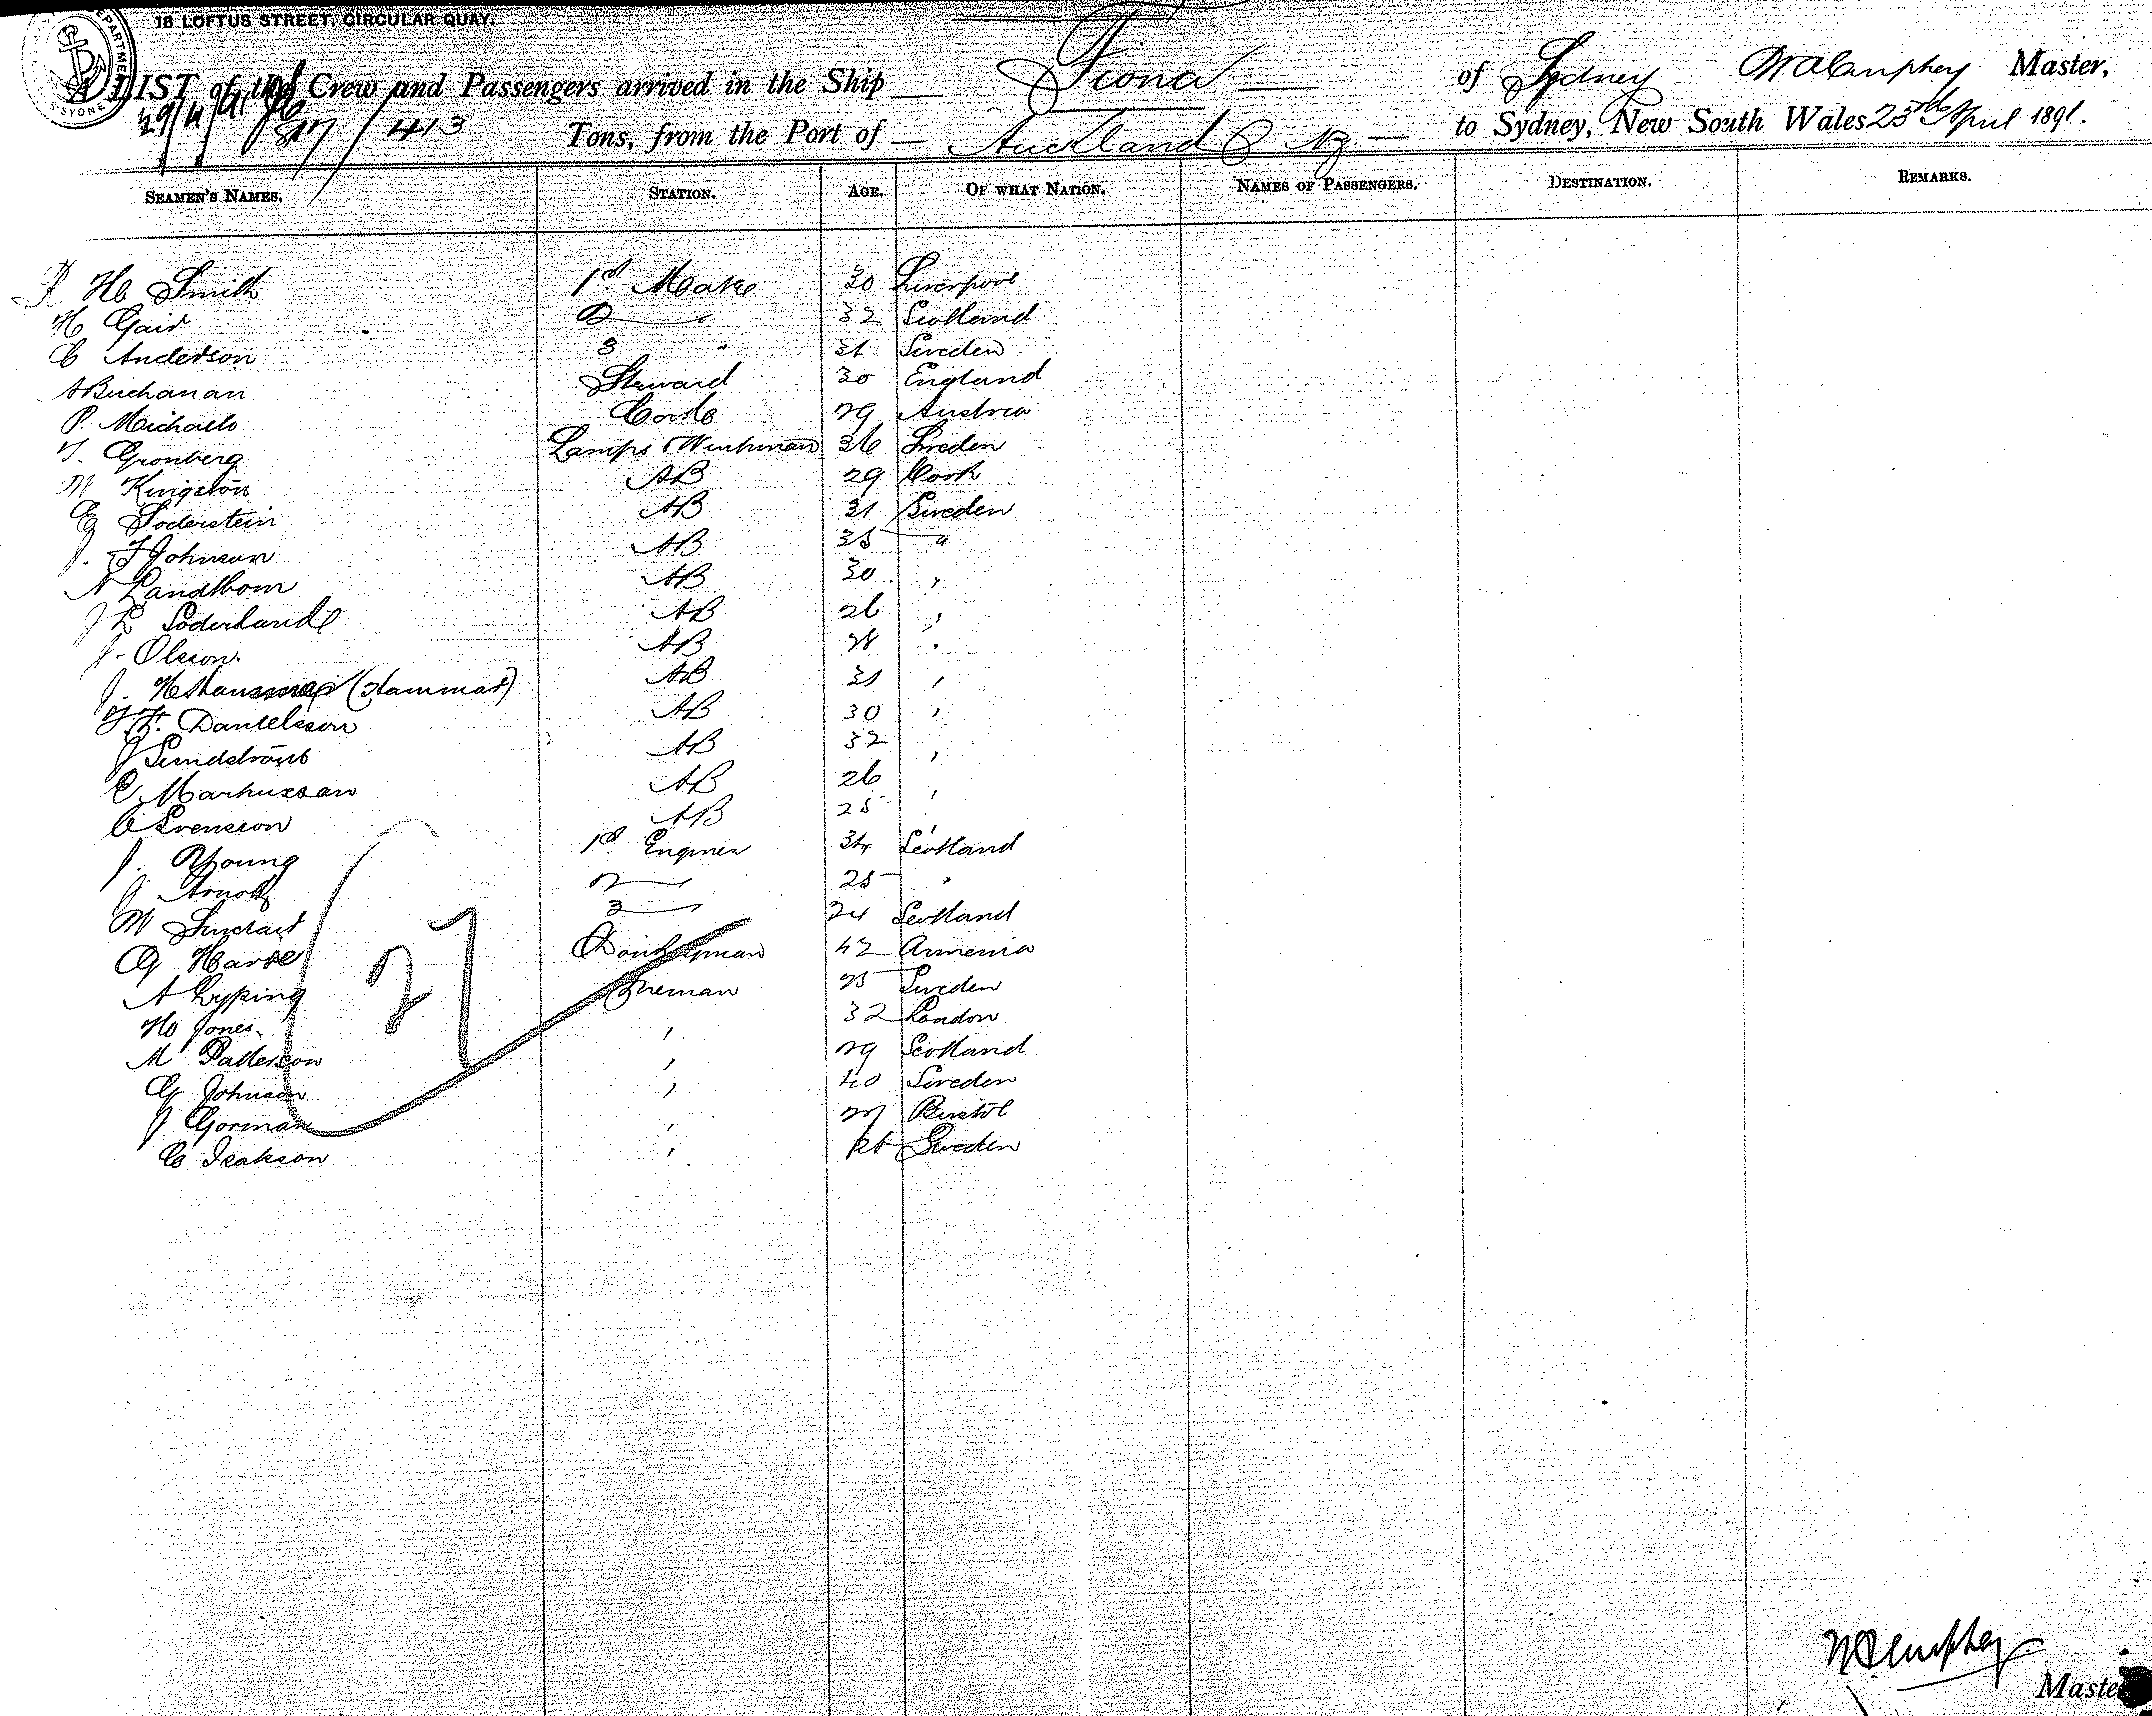 18 LOFTUS STREET, CIRCULAR QUAY.
A LIST of the Crew and Passengers arrived in the Ship Fiona of Sydney Master,
29/4/91 817/413 Tons, from the Port of Auckland NZ to Sydney, New South Wales 25th April 1891.
SEAMEN'S NAMES. STATION. AGE. OF WHAT NATION. NAMES OF PASSENGERS. DESTINATION. REMARKS.
H Smith 1st Mate 30 Liverpool
H Gair 2 " 32 Scotland
C Anderson 3 " 31 Sweden
A Buchanan Steward 30 England
P. Michaels Cook 29 Austria
T. Gronberg Lamps & Winchman 36 Sweden
M Kingston AB 29 Cork
E Soderstein AB 31 Sweden
J. F Johnson AB 35 "
A Landbom AB 30 "
J L Soderlund AB 26 "
J. Olsson AB 28 "
J. (Hammar) AB 31 "
F. Danielsson AB 30 "
J Sundstrom AB 32 "
C. Markusson AB 26 "
C Svensson AB 25 "
J. Young 1st Engineer 34 Scotland
J. Arnott 2 25 "
M Sinclair 3 24 Scotland
G Donkeyman 42 Armenia
A Lyping Fireman 25 Sweden
H Jones " 32 London
M Patterson " 29 Scotland
G Johnson " 40 Sweden
J Gorman " 27 Bristol
C Isakson " Sweden
27
Master